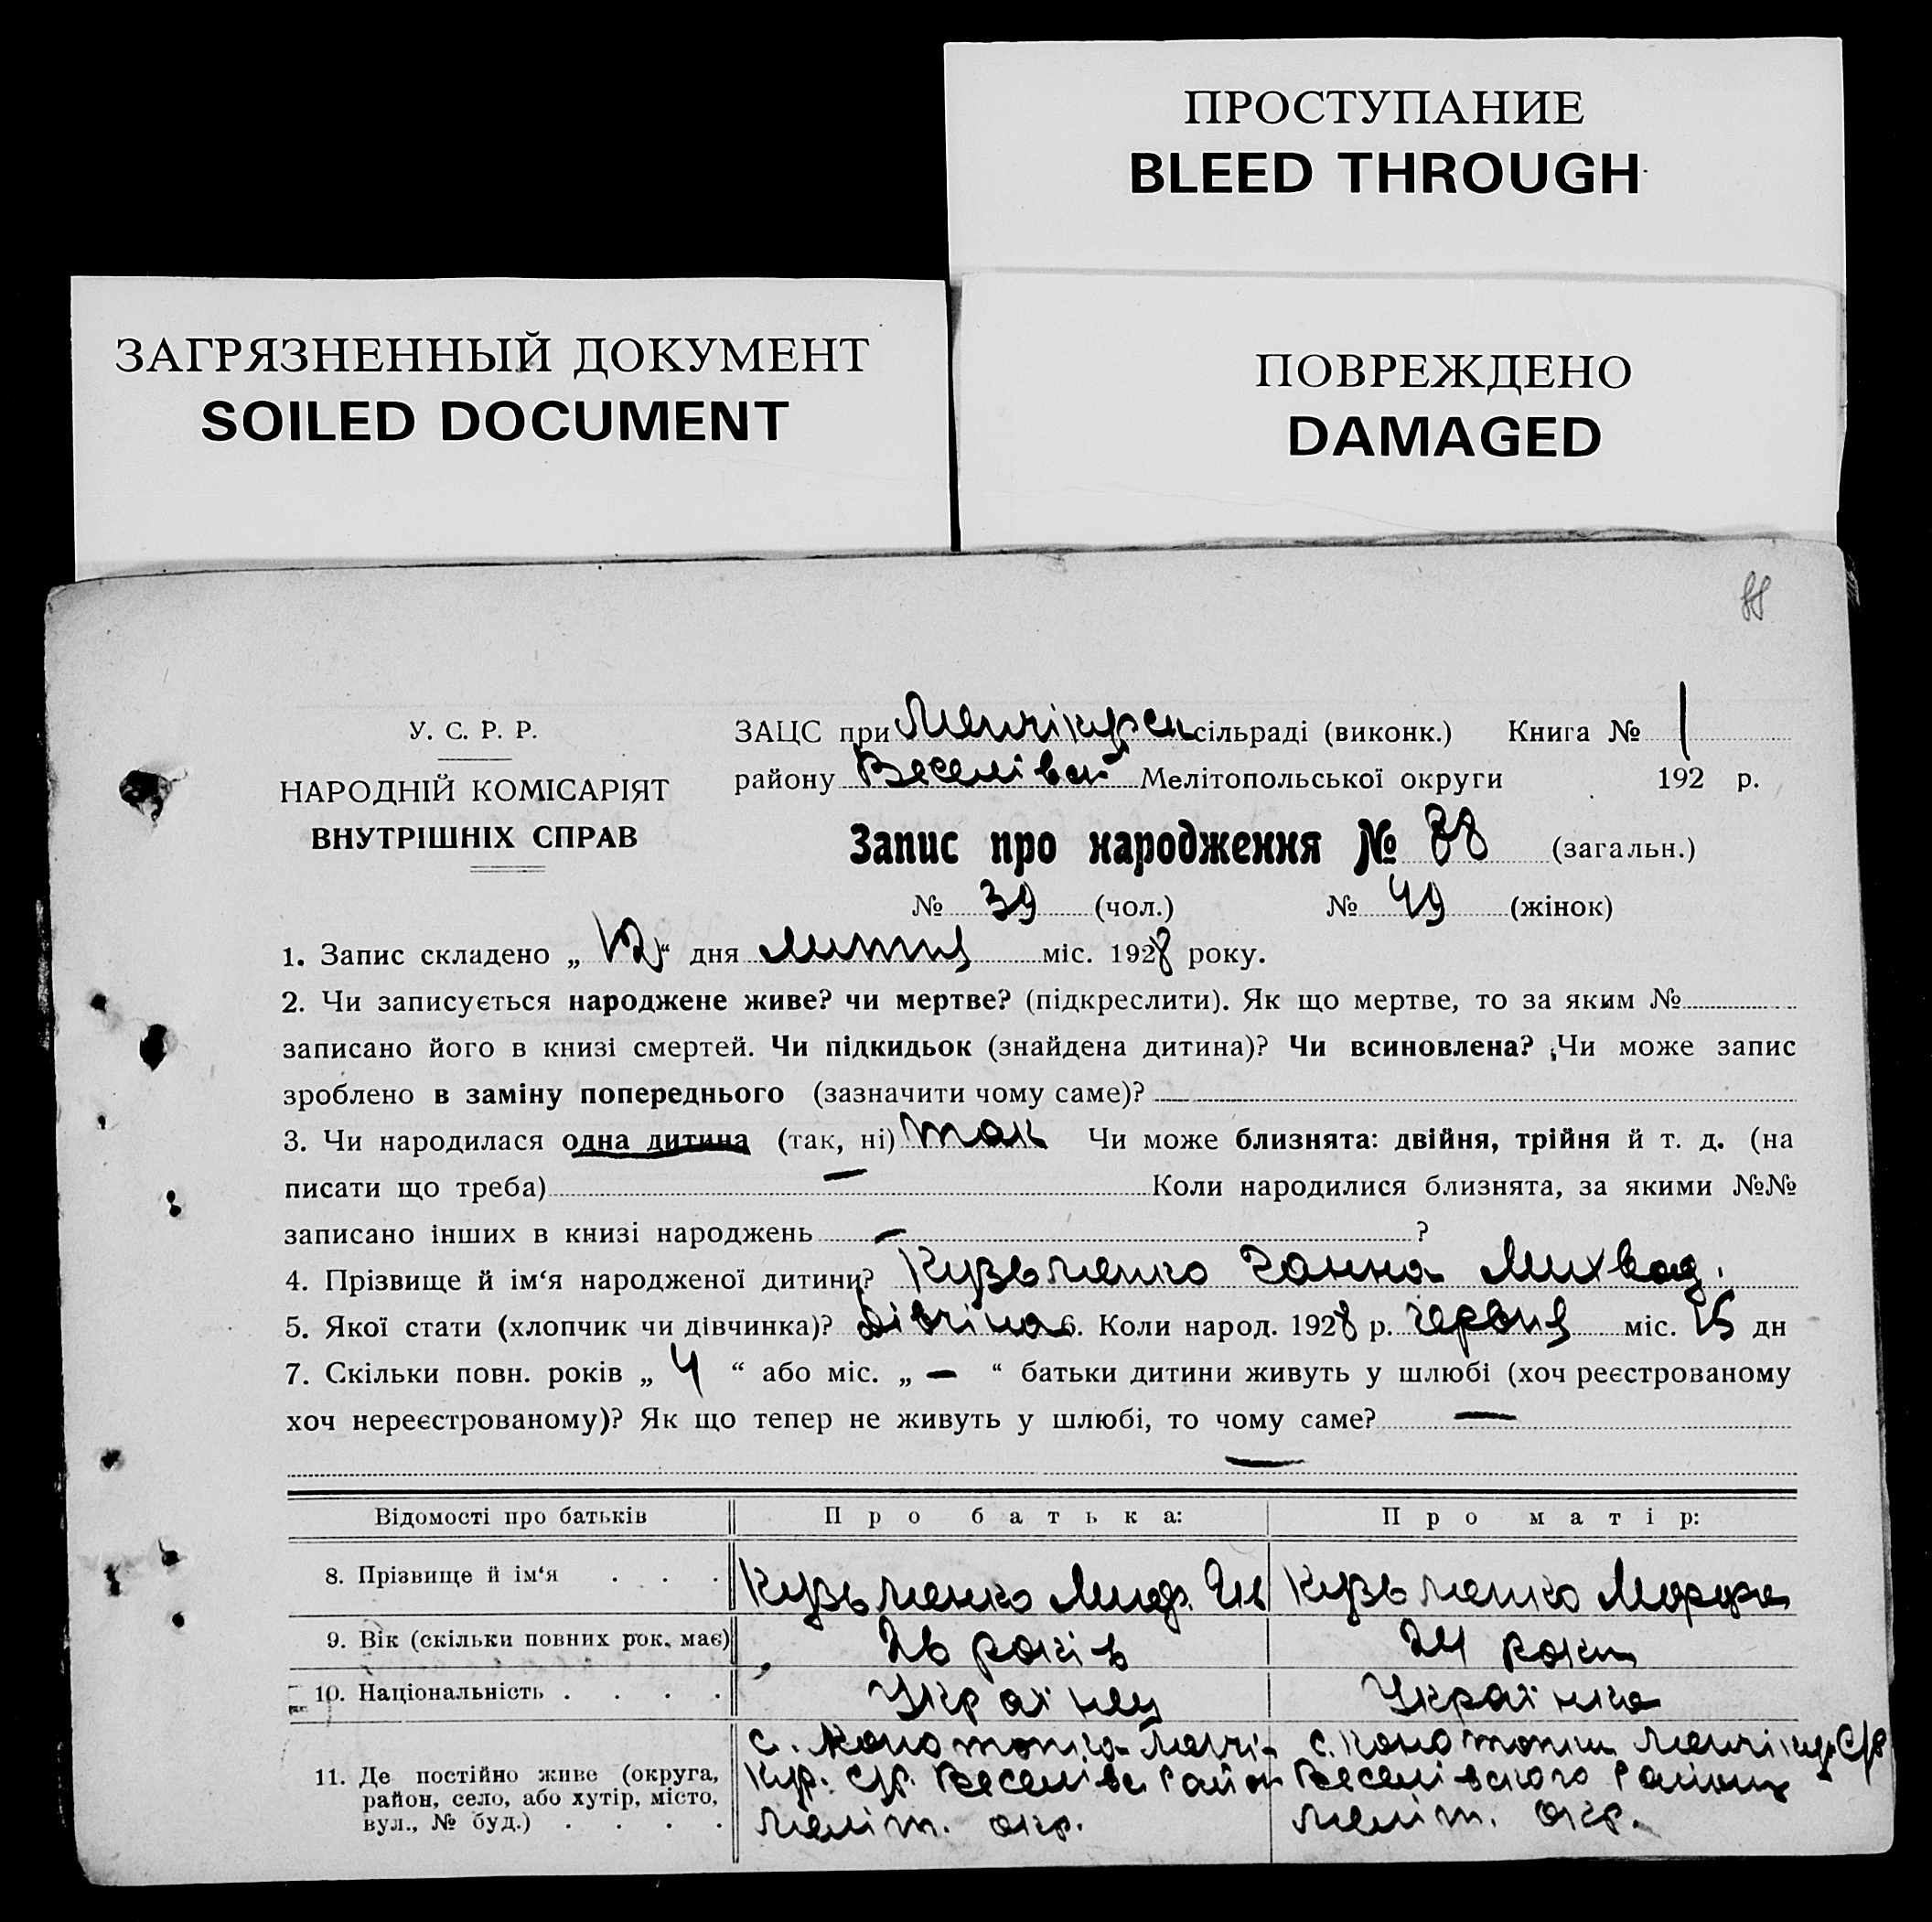 ПРОСТУПАНИЕ
BLEED THROUGH
ЗАГРЯЗНЕННЫЙ ДОКУМЕНТ
SOILED DOCUMENT
ПОВРЕЖДЕНО
DAMAGED
88
У. С. Р. Р.
НАРОДНІЙ КОМІСАРІЯТ
ВНУТРІШНІХ СПРАВ
ЗАЦС при Менчікурен сільраді (виконк.) Книга № 1
району Веселівськ Мелітопольської округи 192 р.
Запис про народження № 88 (загальн.)
№ 39 (чол.) № 49 (жінок)
1. Запис складено „ 12 “ дня липня міс. 1928 року.
2. Чи записується народжене живе? чи мертве? (підкреслити). Як що мертве, то за яким №
записано його в книзі смертей. Чи підкидьок (знайдена дитина)? Чи всиновлена? Чи може запис
зроблено в заміну попереднього (зазначити чому саме)?
3. Чи народилася одна дитина (так, ні) так Чи може близнята: двійня, трійня й т. д. (на
писати що треба) — Коли народилися близнята, за якими №№
записано інших в книзі народжень — ?
4. Прізвище й ім‘я народженої дитини? Кузьменко Ганна
5. Якої стати (хлопчик чи дівчинка)? Дівчіна 6. Коли народ. 1928 р. червня міс. 25 дн
7. Скільки повн. років „ 4 “ або міс. „ — “ батьки дитини живуть у шлюбі (хоч реєстрованому
хоч нереєстрованому)? Як що тепер не живуть у шлюбі, то чому саме? —
—
Відомості про батьків Про батька: Про матір:
8. Прізвище й ім‘я . . . Кузьменко Миф. Кузьменко Марфа
9. Вік (скільки повних рок. має) 26 років 24 роки
10. Національність . . . . Українец Українка
11. Де постійно живе (округа, район, село, або хутір, місто, вул., № буд.) . . . .
с. Конотопка Менчі-
кур. с/р. Веселівс. район
Меліт. окр.
с. Конотопки Менчікур. С/р
Веселівського району
Меліт. окр.